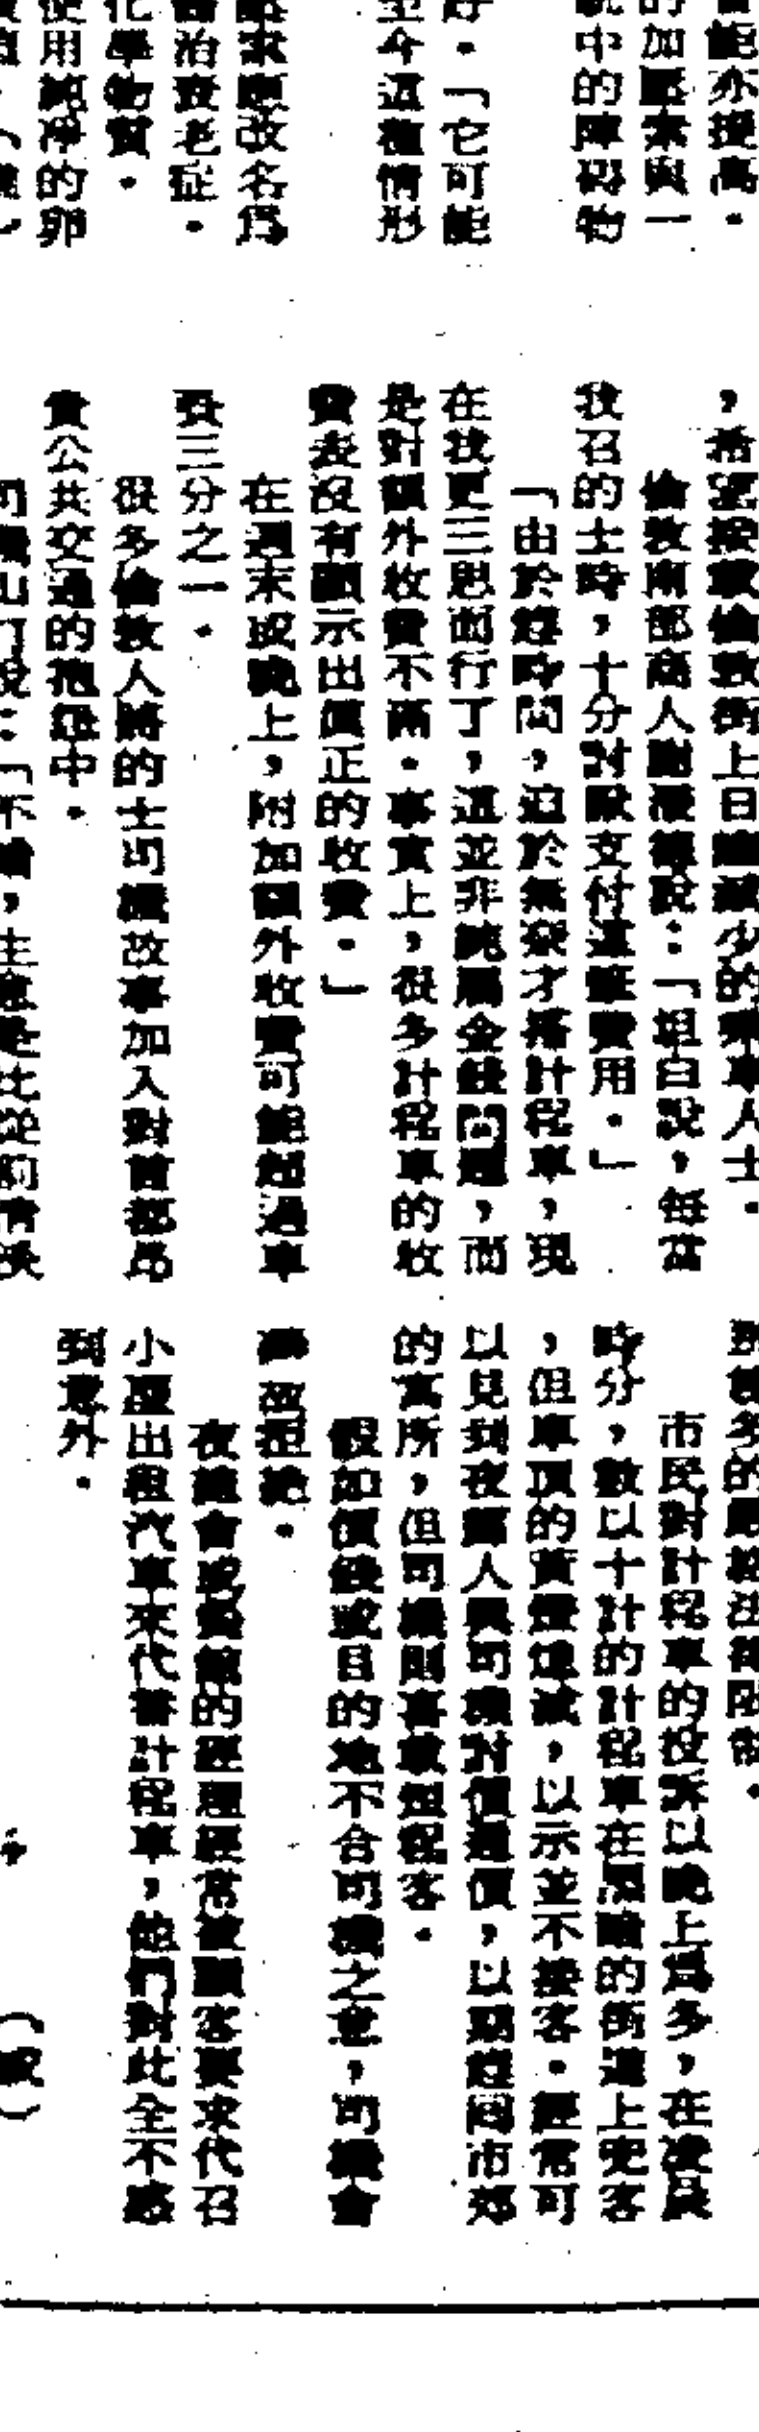 能亦提高。
的加壓素與一
統中的障碍物
好。「它可能
至今這種情形
家應改名爲
治衰老症。
化學物質。
使用純淨的卵
，希望按載倫敦街上日漸減少的乘車人士。
倫敦南部商人謝漫德說：「坦白說，每當
我召的士時，十分討厭支付這筆費用。」
「由於趕時間，迫於無奈才搭計程車，現
在我更三思而行了，這並非純屬金錢問題，而
是對額外收費不滿。事實上，很多計程車的收
費表沒有顯示出價正的收費。」
在週末或晚上，附加額外收費可能超過車
費三分之一。
很多倫敦人將的士司機故事加入對首都昂
貴公共交通的抱怨中。
司機出们說：「不錯，生意是比從前清淡
到許多的嚴格法律限制。
市民對計程車的投訴以晚上爲多，在凌晨
時分，數以十計的計程車在黑暗的街道上兜客
，但車頂的黃燈熄滅，以示並不接客。經常可
以見到夜歸人與司機討價還價，以期趕回市郊
的寓所，但司機則喜載短程客。
假如價錢或目的地不合司機之意，司機會
藉故拒絶。
夜總會或餐館的經理經常被顧客要求代召
小型出租汽車來代替計程車，他們對此全不感
到意外。